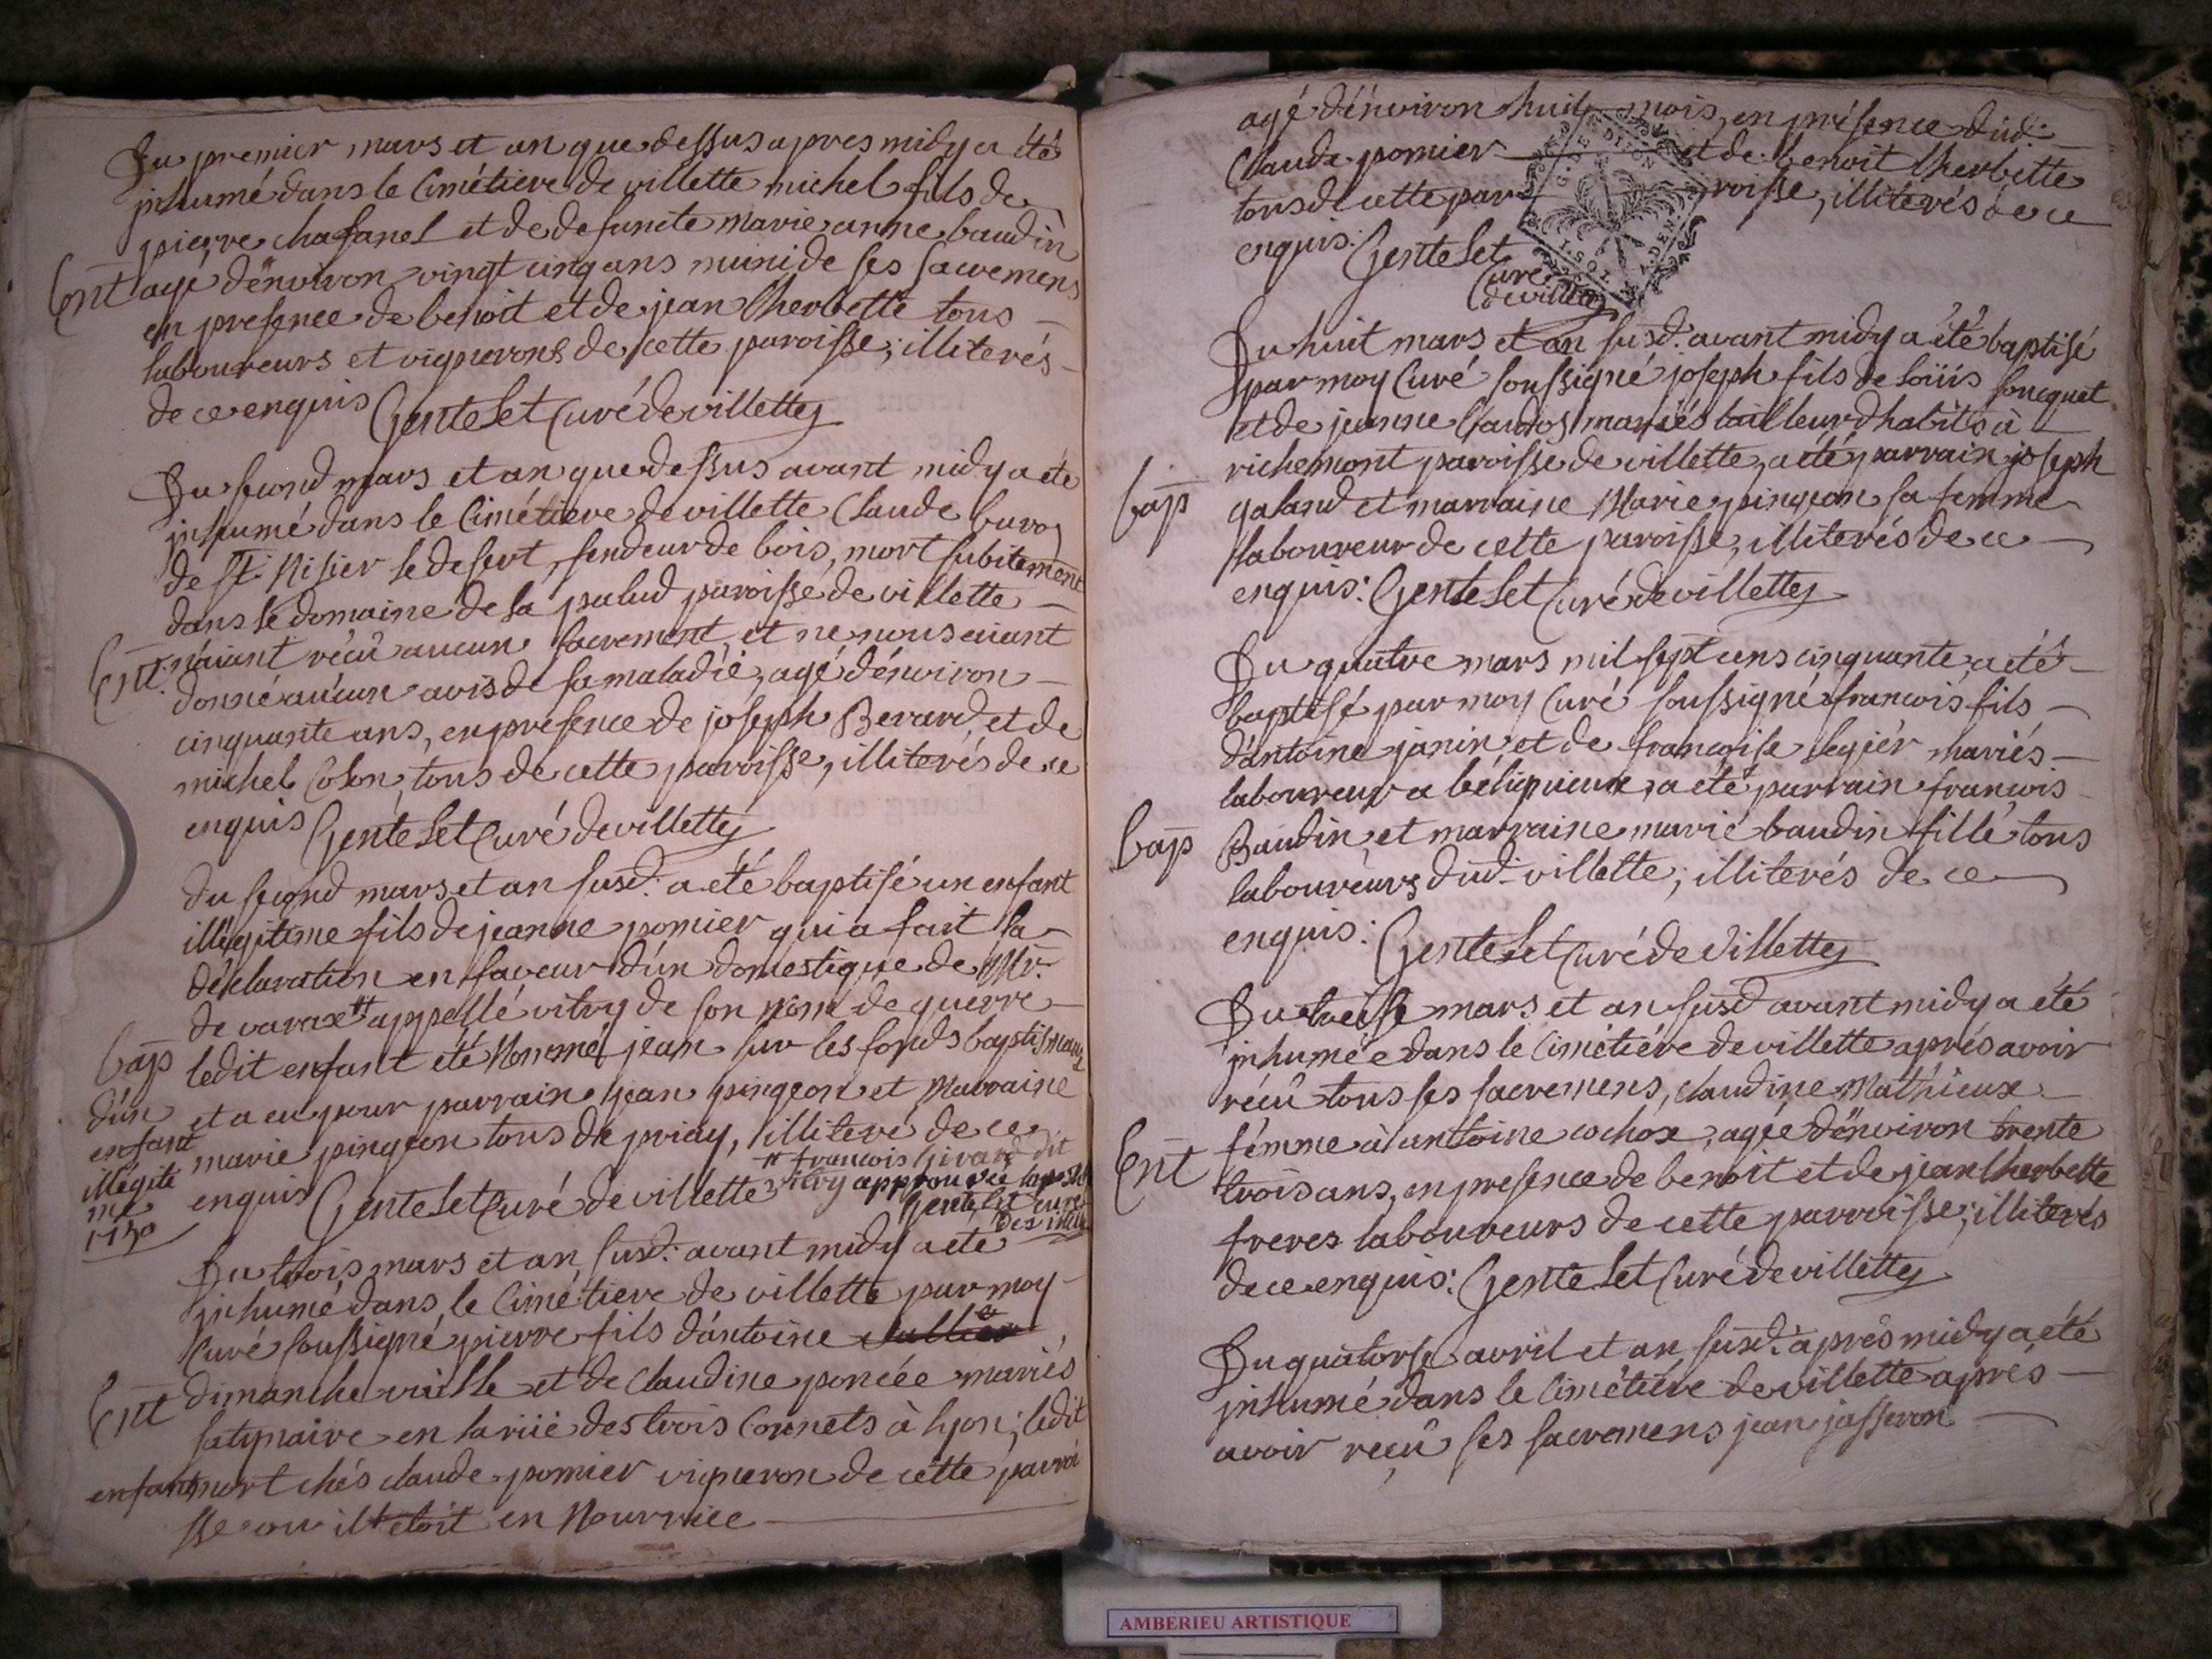 Du premier mars et an que dessus apres midy a été
inhumé dans le Cimétiere de villette michel fils de
pierre chafanel et de defuncte Marie anne baudin
Ent
agé d'environ vingt cinq ans muni de ses sacremens
en presence de benoit et de jean lherbette tous
laboureurs et vignerons de cette paroisse; illiterés
de ce enquis Gentelet Curé de villette
Du second mars et an que dessus avant midy a été
inhumé dans le Cimétiere de villette Claude buroz
de st. Nisier le desert, fendeur de bois, mort subitement
dans le domaine de la palud paroisse de villette
Ent.
n'aiant réçû aucun sacrement, et ne nous aiant
donné aucun avis de sa maladie, agé d'environ
cinquante ans, en presence de joseph Berard, et de
michel Colon, tous de cette paroisse, illiterés de ce
enquis Gentelet Curé de villette
du second mars et an susd. a été baptisé un enfant
illegitime fils de jeanne pomier qui a fait sa
déclaration en faveur d'un domestique de Mr.
de varax # appellé vitry de son Nom de guerre
Bap d'un enfant illégitime 1750
ledit enfant été Nommé jean sur les fonds baptismaux
et a eu pour parrain jean pingeon et Marraine
marie pingeon tous de priay, illiteré de ce
enquis Gentelet Curé de villette
# francois Girard dit
vitry approuvée
Gentelet curé
de villette
Du trois mars et an susd: avant midy a été
inhumé dans le Cimétiere de villette par moy
Curé soussigné pierre fils d'antoine
Ent
dimanche et de Claudine poncée mariés
satynaire en la rüe des trois Cornets à lyon; ledit
enfant mort chés claude pomier vigneron de cette parroi
sse ou il étoit en Nourrice
agé d'environ huit mois, en présence dud:
Claude pomier et de benoit lherbette
tous de cette paroisse, illiterés de ce
enquis: Gentelet
Curé
de villette
Du huit mars et an susd: avant midy a été baptisé
par moy Curé soussigné joseph fils de loüis foncquet
et de jeanne mariés tailleur d'habits à
richemont paroisse de villette, a été parrain joseph
Bap
galand et marraine Marie pingeon sa femme
laboureur de cette paroisse, illiterés de ce
enquis: Gentelet Curé de villette
Du quatre mars mil sept cens cinquante, a été
baptisé par moy Curé soussigné francois fils
d'antoine janin et de francoise legiér mariés
laboureur a bélignieux, a été parrain francois
Bap
Baudin et marraine marie baudin fille tous
laboureurs dud. villette; illiterés de ce
enquis: Gentelet Curé de villette
Du treise mars et an susd avant midy a été
inhumée dans le Cimétiére de villette aprés avoir
réçû tous ses sacremens, claudine Mathieux
Ent
fémme à antoine cochox, agée d'environ trente
trois ans, en presence de benoit et de jean lherbette
freres laboureurs de cette parroisse; illiterés
de ce enquis: Gentelet Curé de villette
Du quatorse avril et an susd: aprés midy a été
inhumé dans le Cimétiére de villette aprés
avoir reçû ses sacremens jean jasseron
AMBERIEU ARTISTIQUE